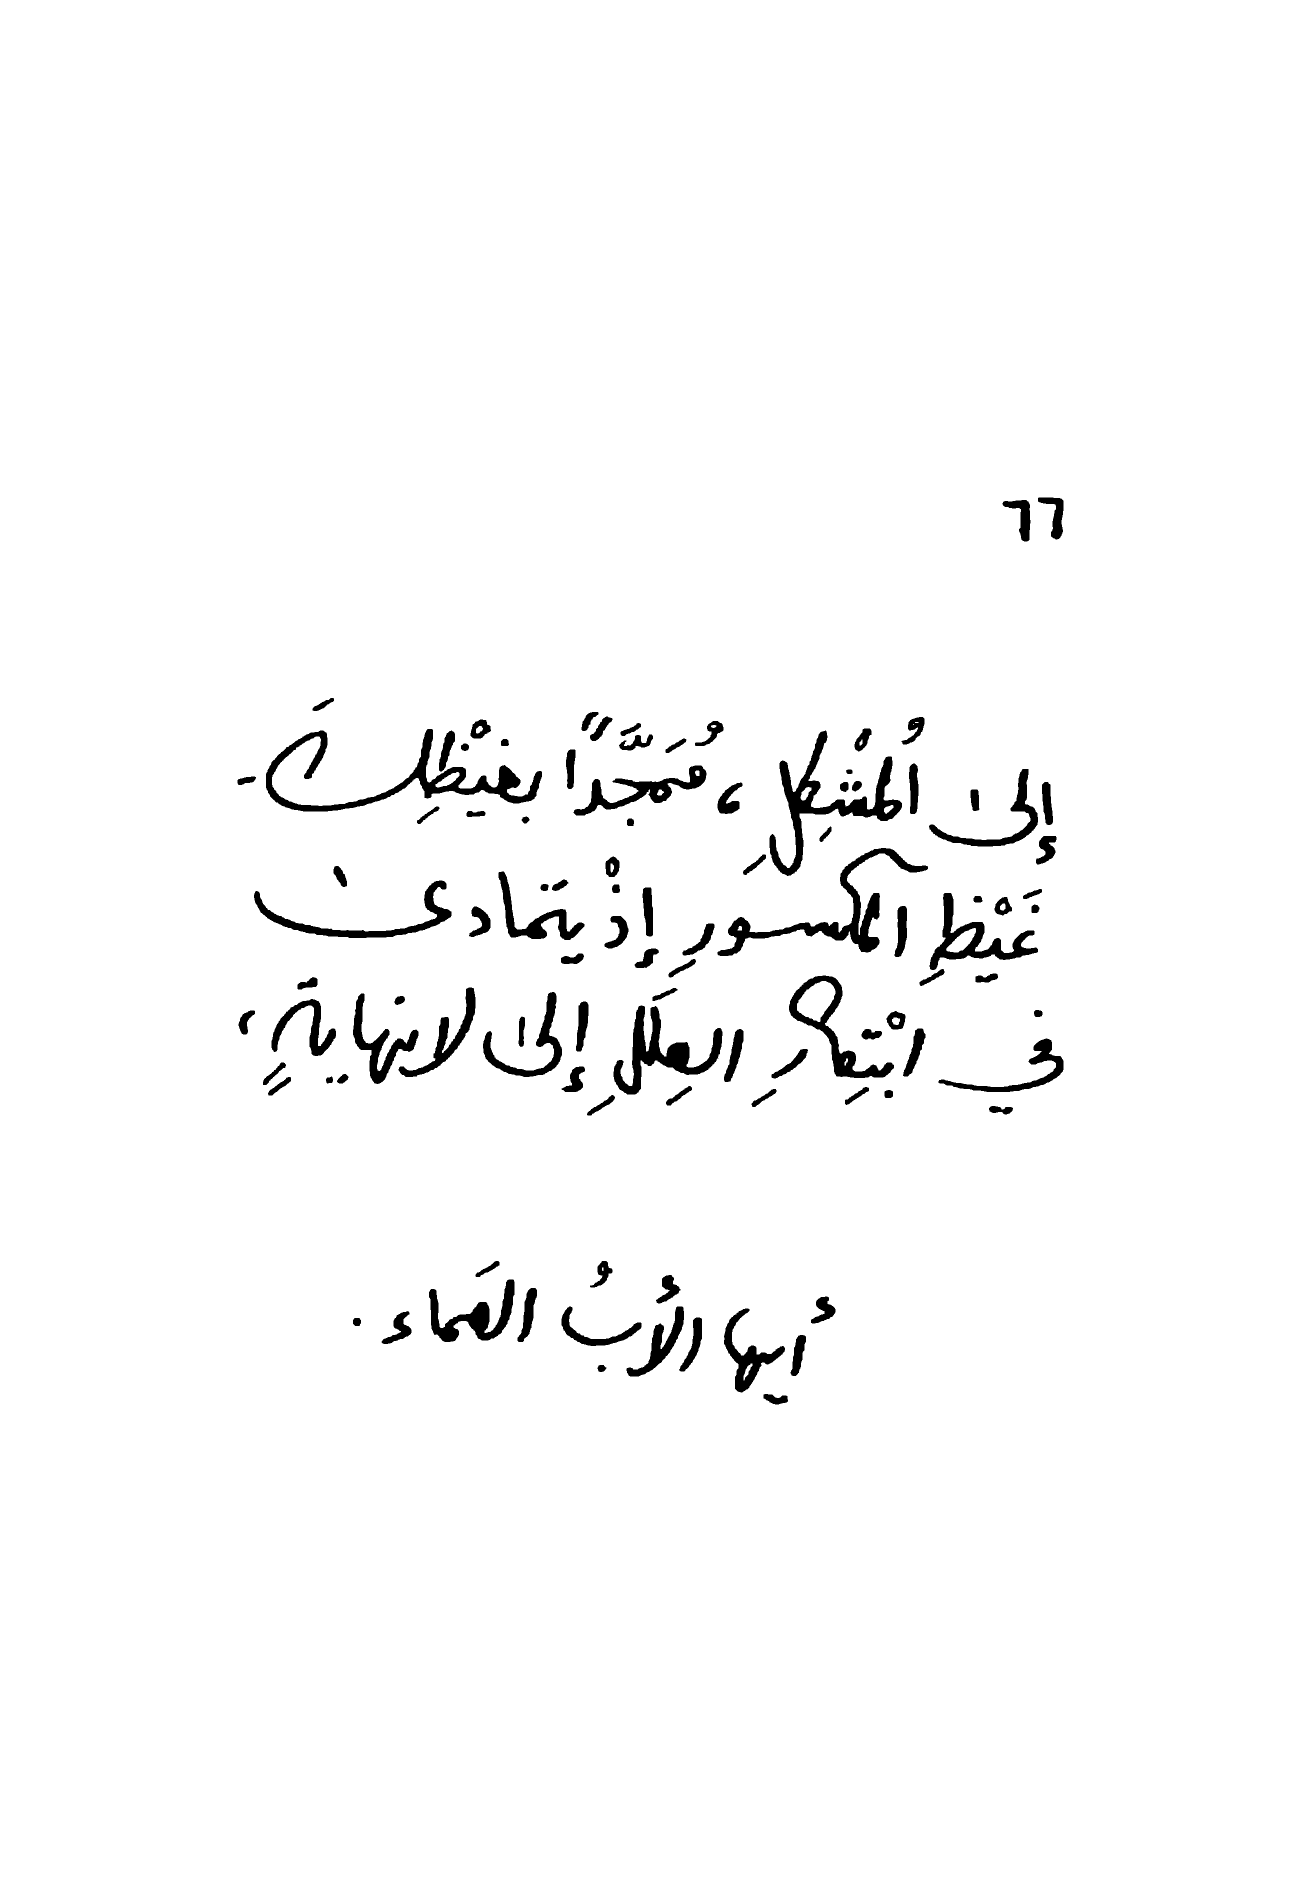 ٦٦
إلىٰ ٱلُمشْكِلِ، مُمَجَّدًا بغيْظِكَ -
غَيْظِ المكسورِ إذْ يَتمادىٰ
في ابْتِكارِ العِلَلِ إلىٰ لانهايةٍ،
أيها الأبُ العَماء.